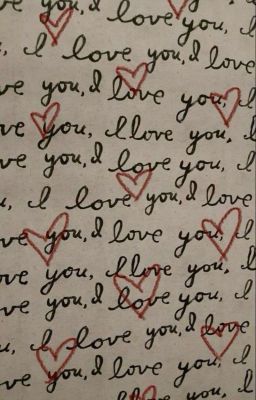 ve you, I love you, I
, I love you, I love
ve you, I love you, I
ve you, I love you, I
ve you, I love you, I
u, I love you, I love
ve you, I love you, I
ove you, I love you, I
ve you, I love you, I
u, I love you, I love
ve you, I love you, I
love you, I